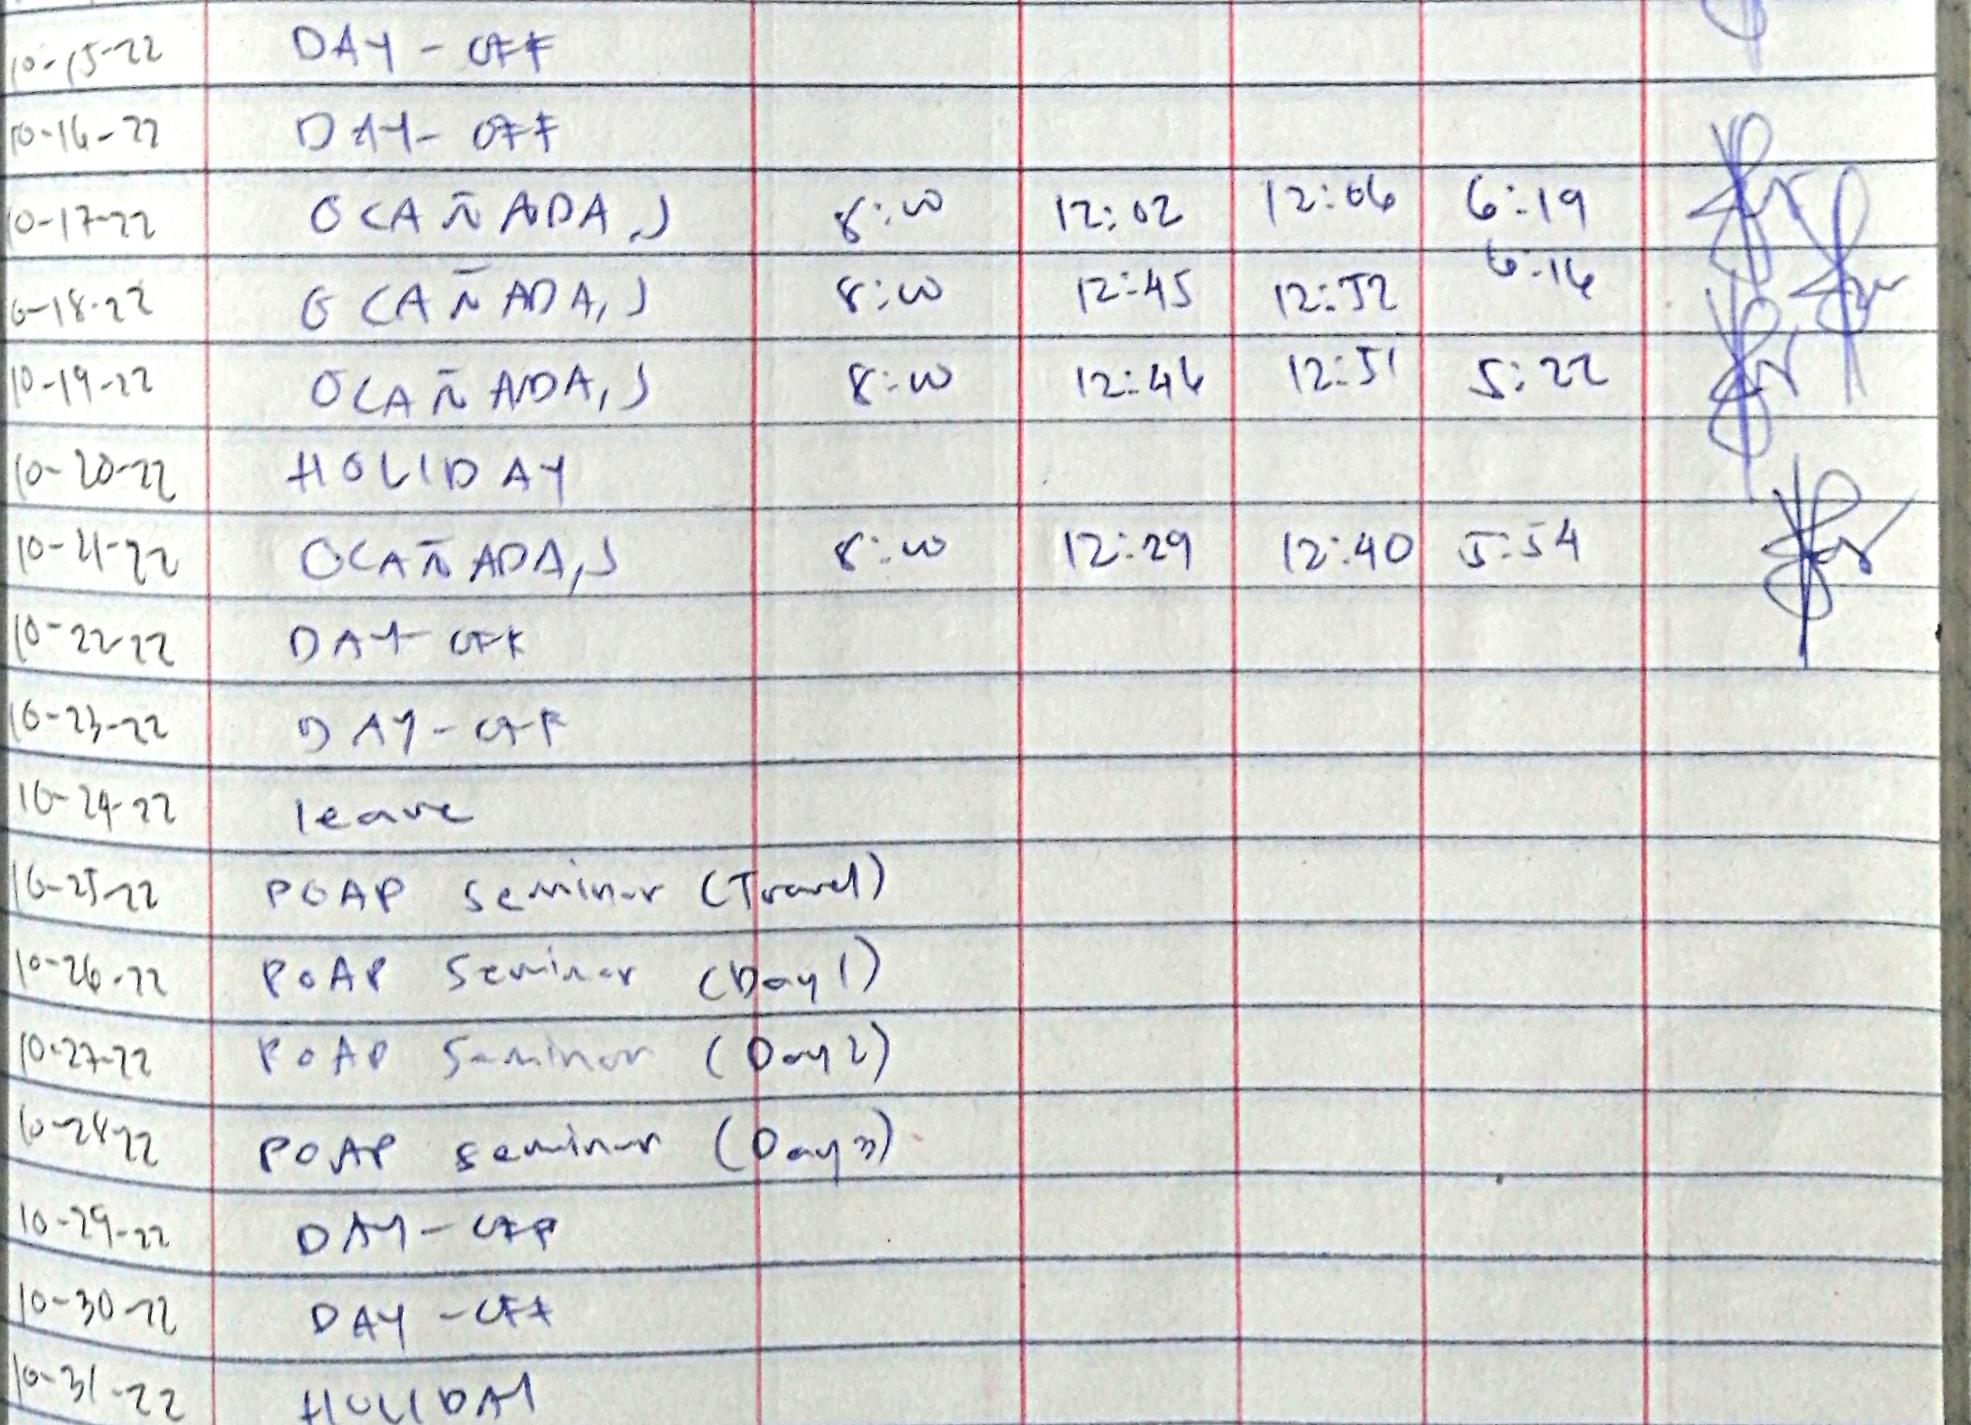 10-15-22 DAY-OFF
10-16-22 DAY-OFF
10-17-22 OCAÑADA, J 8:00 12:02 12:06 6:19
10-18-22 OCAÑADA, J 8:00 12:45 12:52 6:16
10-19-22 OCAÑADA, J 8:00 12:46 12:51 5:22
10-20-22 HOLIDAY
10-21-22 OCAÑADA, J 8:00 12:29 12:40 5:54
10-22-22 DAY-OFF
10-23-22 DAY-OFF
10-24-22 leave
10-25-22 POAP seminar (Travel)
10-26-22 POAP Seminar (Day 1)
10-27-22 POAP Seminar (Day 2)
10-28-22 POAP seminar (Day 3)
10-29-22 DAY-OFF
10-30-22 DAY-OFF
10-31-22 HOLIDAY